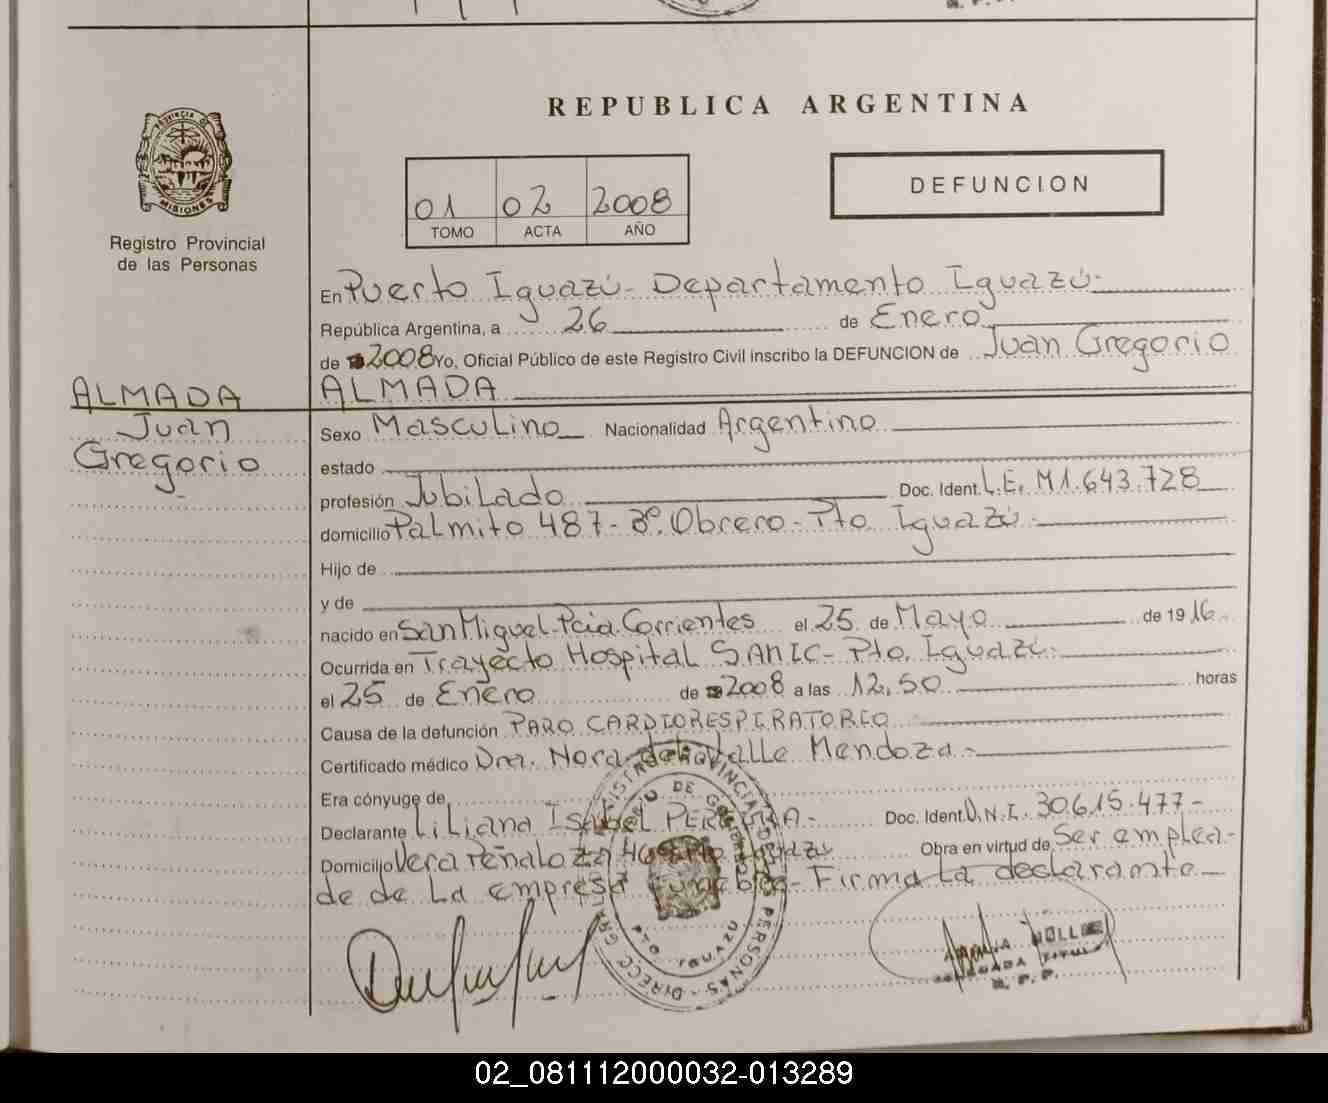 REPUBLICA ARGENTINA
PROVINCIA DE
MISIONES
Registro Provincial
de las Personas
01 02 2008
TOMO ACTA AÑO
DEFUNCION
En Puerto Iguazú- Departamento Iguazú-
República Argentina, a 26 de Enero
de 2008 Yo, Oficial Público de este Registro Civil inscribo la DEFUNCION de Juan Gregorio
ALMADA
ALMADA
Juan
Gregorio
Sexo Masculino Nacionalidad Argentino
estado
profesión Jubilado Doc. Ident. L.E. M1.643.728
domicilio Palmito 487- Bº. Obrero- Pto Iguazú-
Hijo de
y de
nacido en San Miguel- Pcia. Corrientes el 25 de Mayo de 1916
Ocurrida en Trayecto Hospital SAMIC- Pto. Iguazú-
el 25 de Enero de 2008 a las 12,50 horas
Causa de la defunción PARO CARDIORESPIRATORIO
Certificado médico Dra. Nora del Valle Mendoza-
Era cónyuge de
Declarante Liliana Isabel PEREIRA- Doc. Ident. D.N.I. 30.615.477-
Domicilio Vera Peñaloza Pto Iguazú Obra en virtud de Ser emplea-
da de La empresa Funebre- Firma La declarante
PTO IGUAZU
02_081112000032-013289